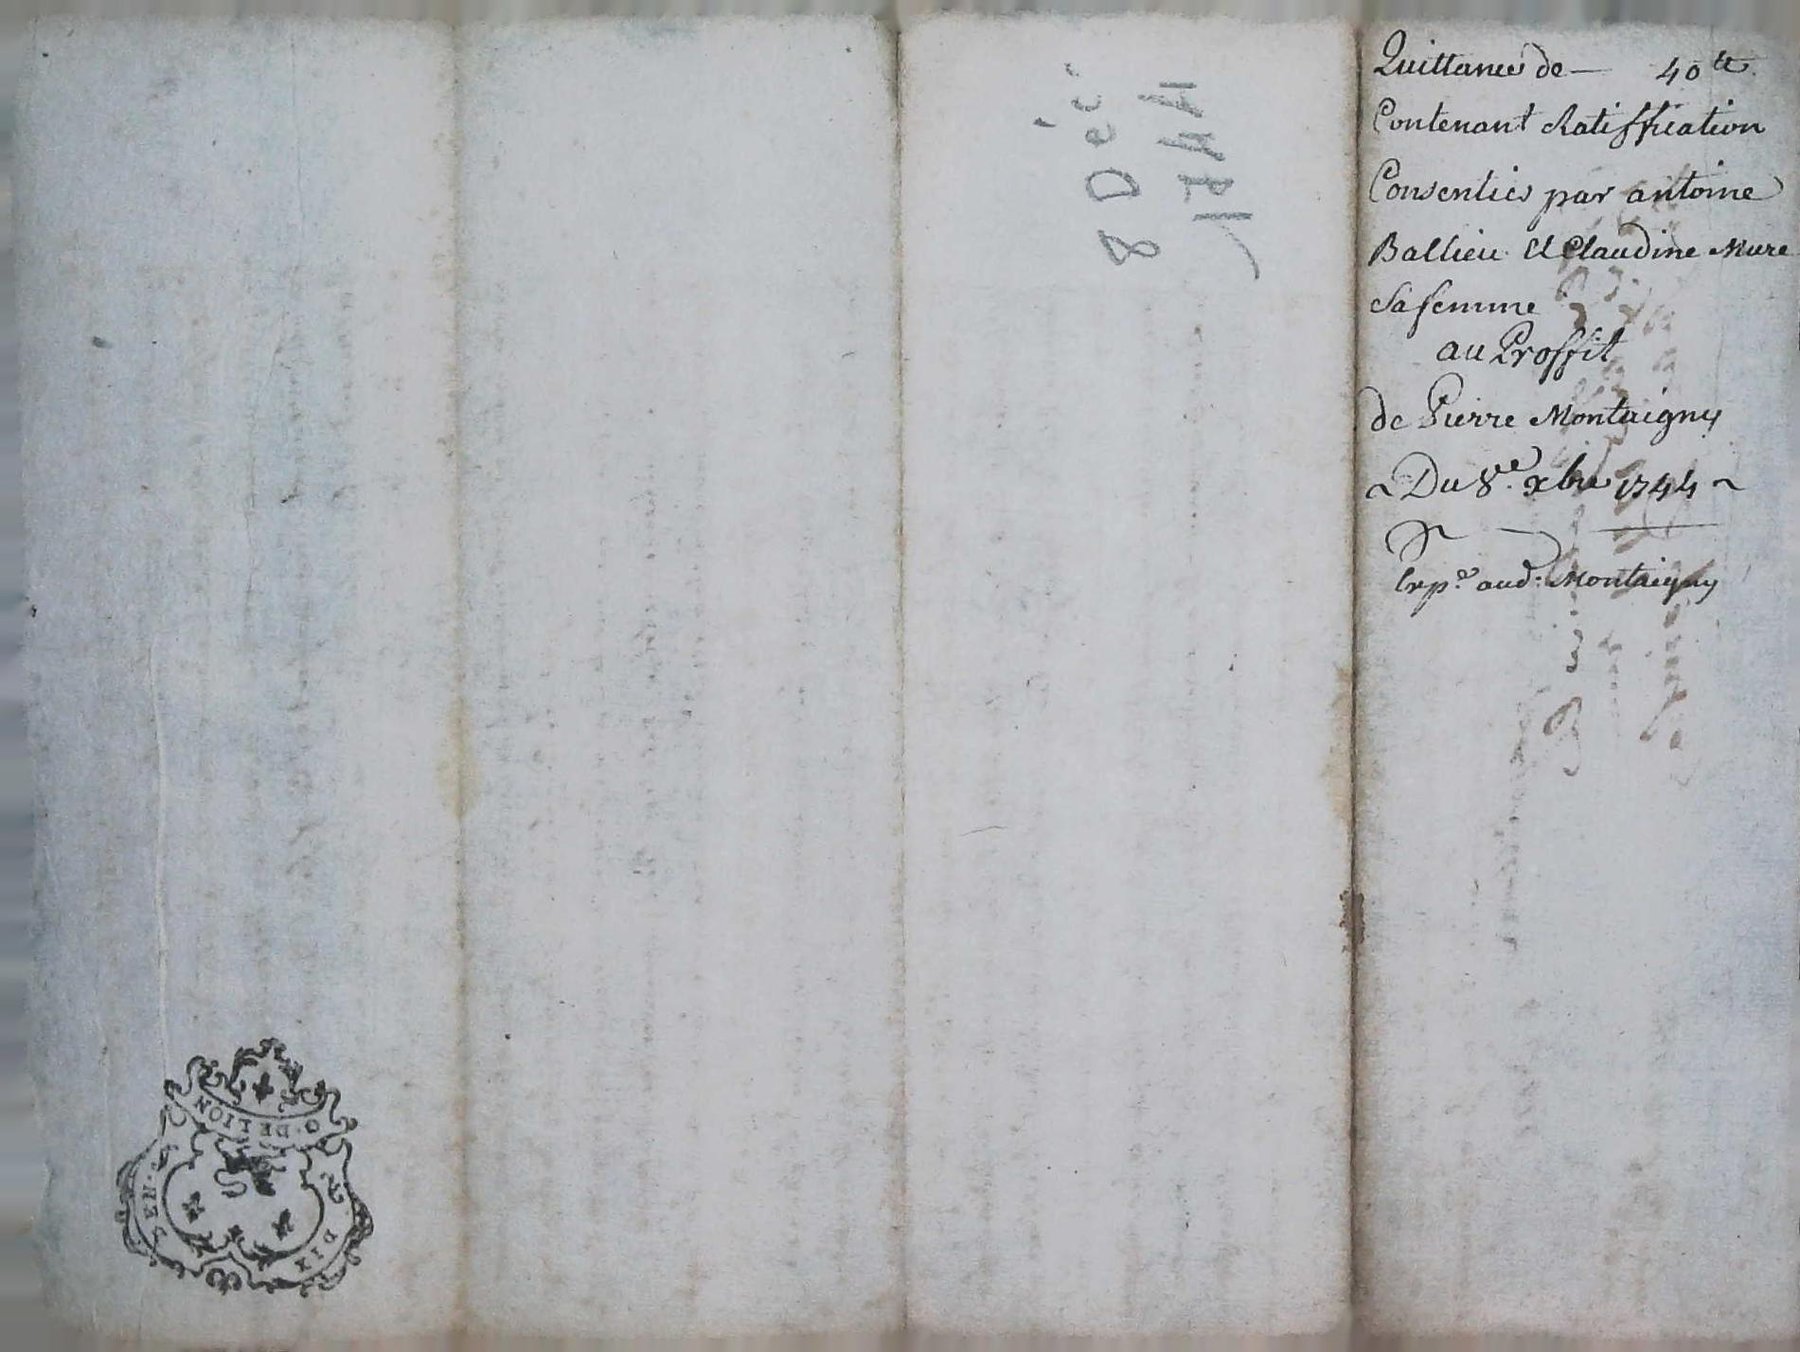 Quittance de — 40 tt
Contenant Ratiffication
Consentie par antoine
Ballieu Et Claudine Mure
Sa femme
au Proffit
de Pierre Montaigny
~ Du 8.e xbre 1744 ~
Exp.e aud. Montaigny
8 Déc
1744
G. DE LION
DIX
DEN.